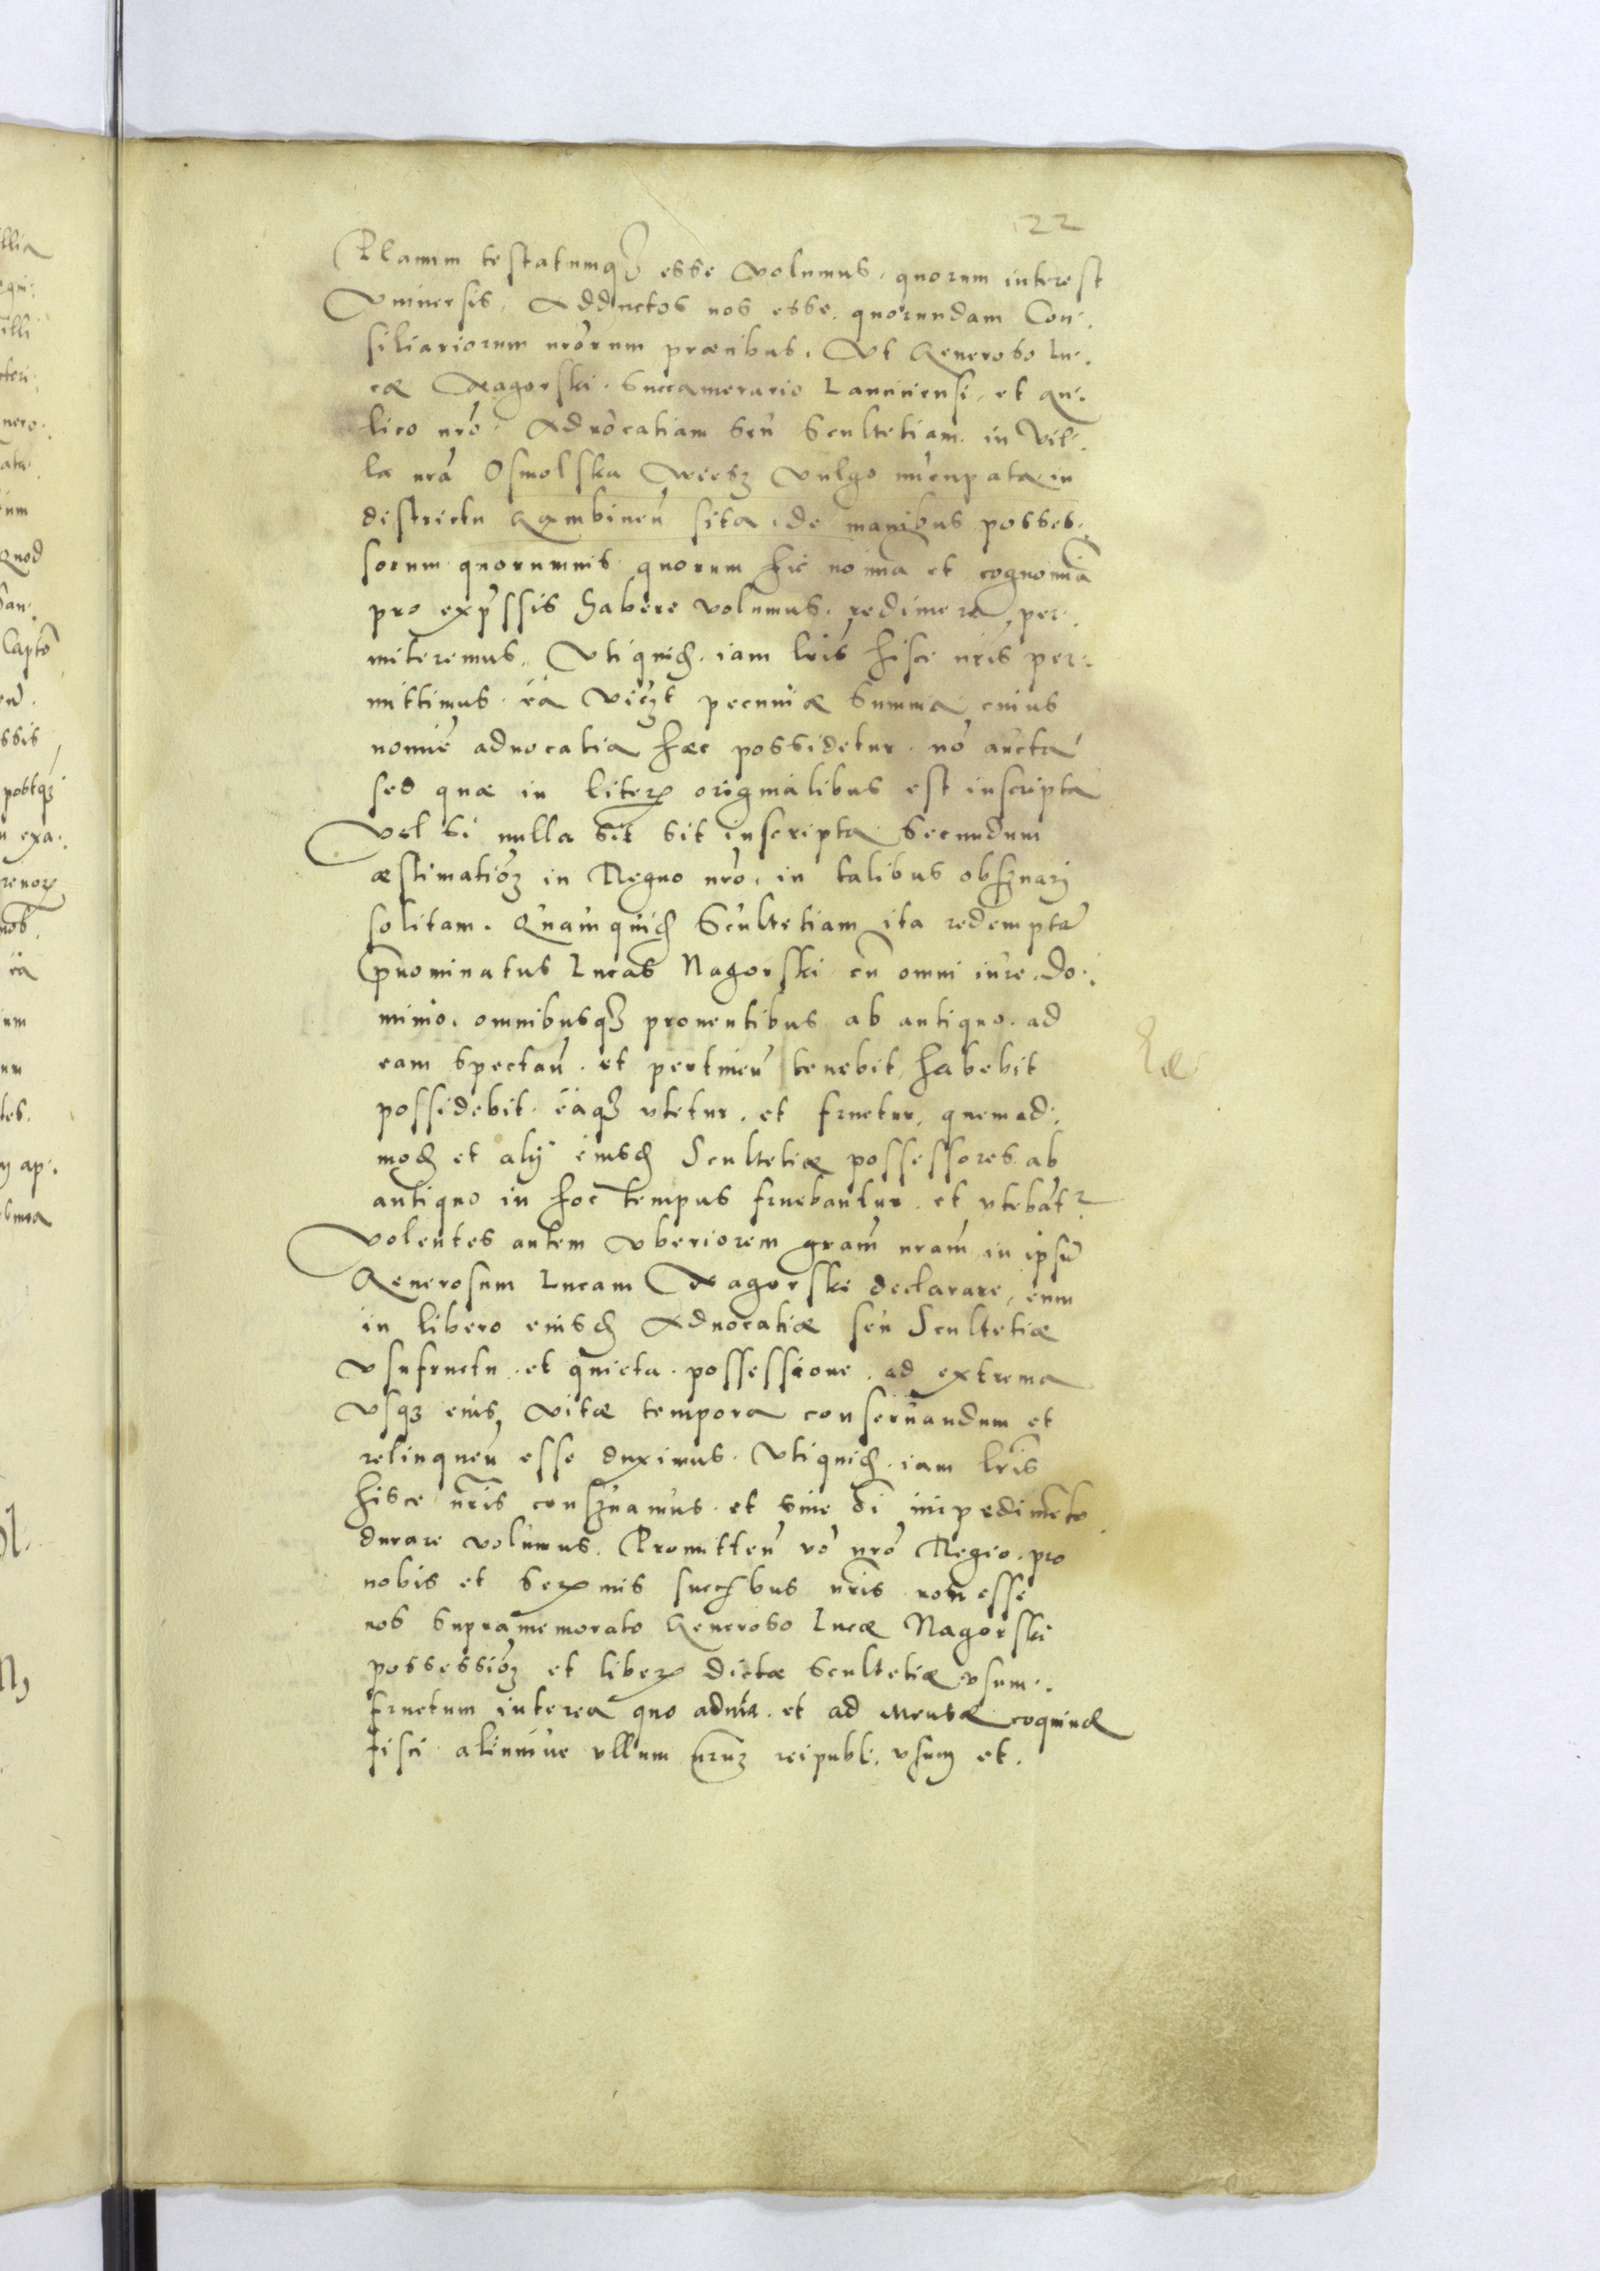 22
Planum testatumq3 esse volumus, quorum interest
Vniuersis, Adductos nos esse, quorundam Con:
siliariorum nrorum præcibus, Vt Generoso Lu:
cæ Nagorski Succamerario Lanciciensi, et au:
lico nro Aduocatiam seu Scultetiam in Vil:
la nra Osmolska Wiesz Vulgo nuncupata in
districtu Gambinen sita, de manibus posses:
sorum quorumuis quorum hic noina et cognoina
pro expssis habere volumus, redimere per:
mitteremus, Vti quid iam lris hisce nris per:
mittimus ea viczt pecuniæ Summa cuius
nomie aduocatia hæc possidetur no aucta
sed quæ in literis originalibus est inscripta
Vel si nulla sit sit inscripta Secundum
æstimatio3 in Regno nro, in talibus obseruari
solitam. Quamquid Scultetiam ita redempta
prnominatus Lucas Nagorski cu omni iure Do:
minio, omnibusq3 prouentibus ab antiquo ad
eam Spectan et pertinen tenebit habebit
possidebit eaq3 vtetur, et fruetur, quemad:
mod et alij eiusd Scultetiæ possessores ab
antiquo in hoc tempus fruebantur et vtebat
Volentes autem Vberiorem gram nram in ipsu
Generosum Lucam Nagorski declarare, eum
in libero eiusd Aduocatiæ seu Scultetiæ
Vsufructu et quieta possessione ad extrema
Vsq3 eius, vitæ tempora conseruandum et
relinquen esse duximus. Vti quid iam lris
hisce nris conseruamus et sine oi impedimeto
durare volumus. Promitten vo nro Regio pro
nobis et Sermis succbus nris non esse
nos Supramemorato Generoso Lucæ Nagorski
possessio3 et liber dictæ Scultetiæ vsum:
fructum interea quo aduix et ad Mensæ coquinæ
fisci aliumue vllum nrum reipubl: vsum et